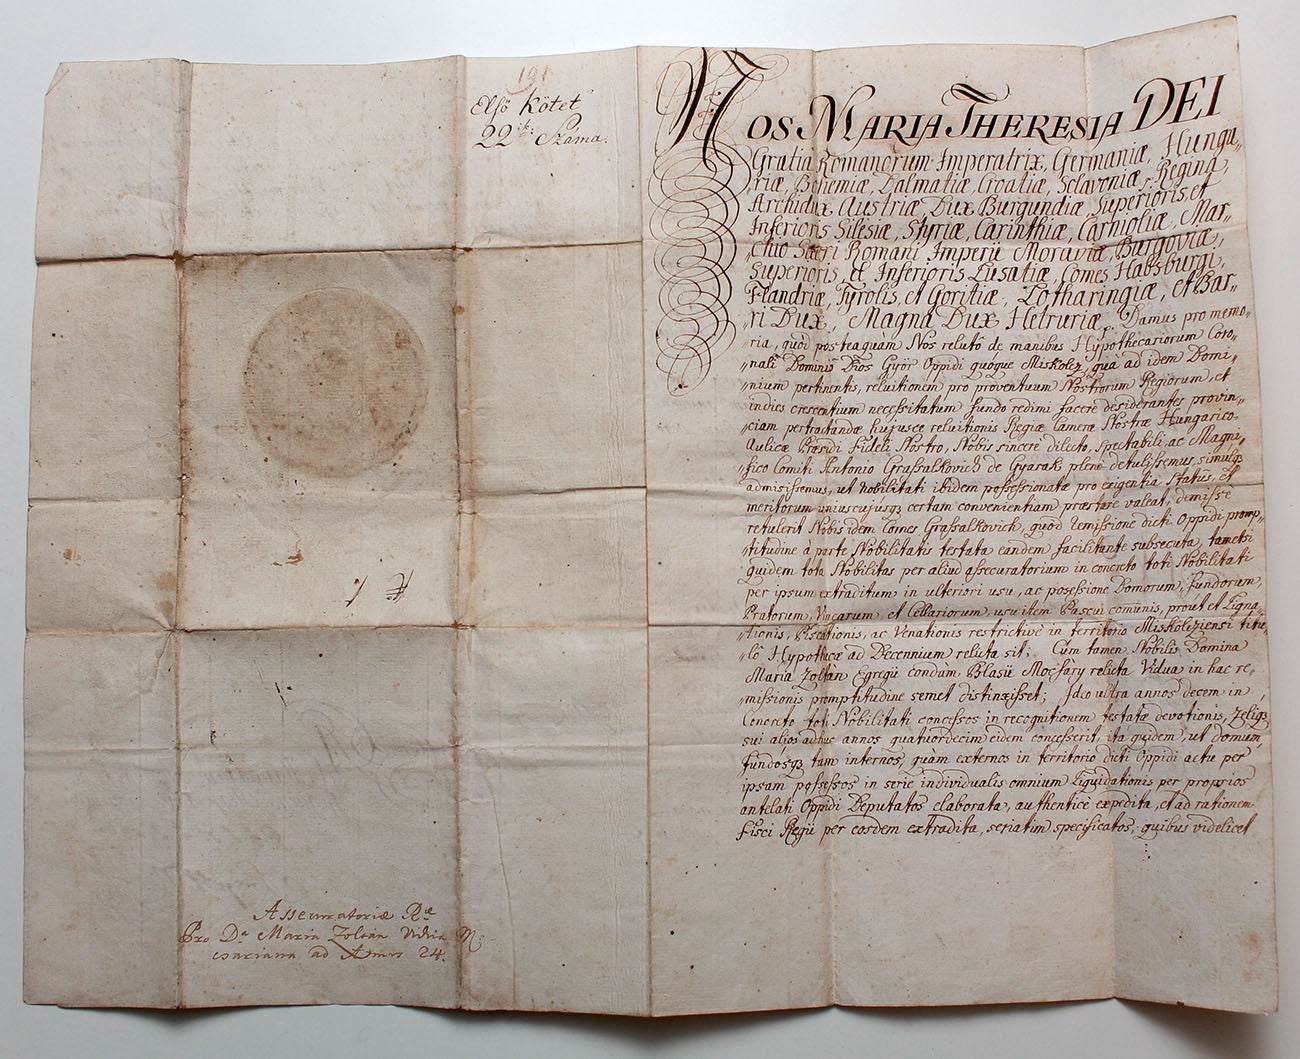 191
Első Kötet
22ik: Száma.
Asseuratoriæ Ræ
Pro Da Maria Zoltan Vidua M:
ocsariana ad Annos 24.
NOS MARIA THERESIA DEI
Gratia Romanorum Imperatrix, Germaniæ, Hunga-
-riæ, Bohemiæ, Dalmatiæ, Croatiæ, Sclavoniæ, Regina,
Archidux Austriæ, Dux Burgundiæ, Superioris, et
Inferioris Silesiæ, Styriæ, Carinthiæ, Carnioliæ, Mar-
-chio Sacri Romani Imperii Moraviæ, Burgoviæ,
Superioris, & Inferioris Lusatiæ, Comes Habsburgi,
Flandriæ, Tyrolis, et Goritiæ, Lotharingiæ, et Bar-
-ri Dux, Magna Dux Hetruriæ. Damus pro memo-
-ria, quòd posteaquam Nos relutô de manibus Hypothecariorum Coro-
-nali Dominio Dios Györ Oppidi quoque Miskolcz, quà ad idem Domi-
-nium pertinentis, reluitionem pro proventuum Nostrorum Regiorum, et
indies crescentium necessitatum fundo redimi facere desiderantes, provin-
-ciam pertractandæ hujusce reluitionis Regiæ Cameræ Nostræ Hungarico
Aulicæ Præsidi Fideli Nostro, Nobis sincerè dilecto, Spectabili, ac Magni-
-fico Comiti Antonio Grassalkovich de Gyarak plenè detulissemus, simulq3
admisissemus, ut Nobilitati ibidem possessionatæ pro exigentia Statûs, et
meritorum uniuscujusq3 certam convenientiam præstare valeat, demisse
retulerit Nobis idem Comes Grassalkovich, quòd remissione dicti Oppidi promp-
-titudine à parte Nobilitatis testata eandem facilitante subsecuta, tametsi
quidem tota Nobilitas per aliud assecuratorium in concreto toti Nobilitati
per ipsum extraditum in ulteriori usu, ac possessione Domorum, Fundorum,
Pratorum, Vinearum, et Cellariorum, usu item Pascui comunis, prout et Ligna-
-tionis, Piscationis, ac Venationis restrictivè in territorio Miskolcziensi titu-
-lô Hypothecæ ad Decennium relicta sit; Cum tamen Nobilis Domina
Maria Zoltán Egregii condàm Blasii Mocsáry relicta Vidua in hac re-
-missionis promptitudine semet distinxisset; Ideo ultra annos decem in
Concreto toti Nobilitati concessos in recognitionem testatæ devotionis, Zeliq3
sui alios adhuc annos quatuordecim eidem concesserit ita quidem, ut domum,
fundosq3 tam internos, quàm externos in territorio dicti Oppidi actu per
ipsam possessos in serie individualis omnium Liquidationis per proprios
antelati Oppidi Deputatos elaborata, authenticè expedita, et ad rationem
Fisci Regii per eosdem extradita, seriatim specificatos, quibus videlicet